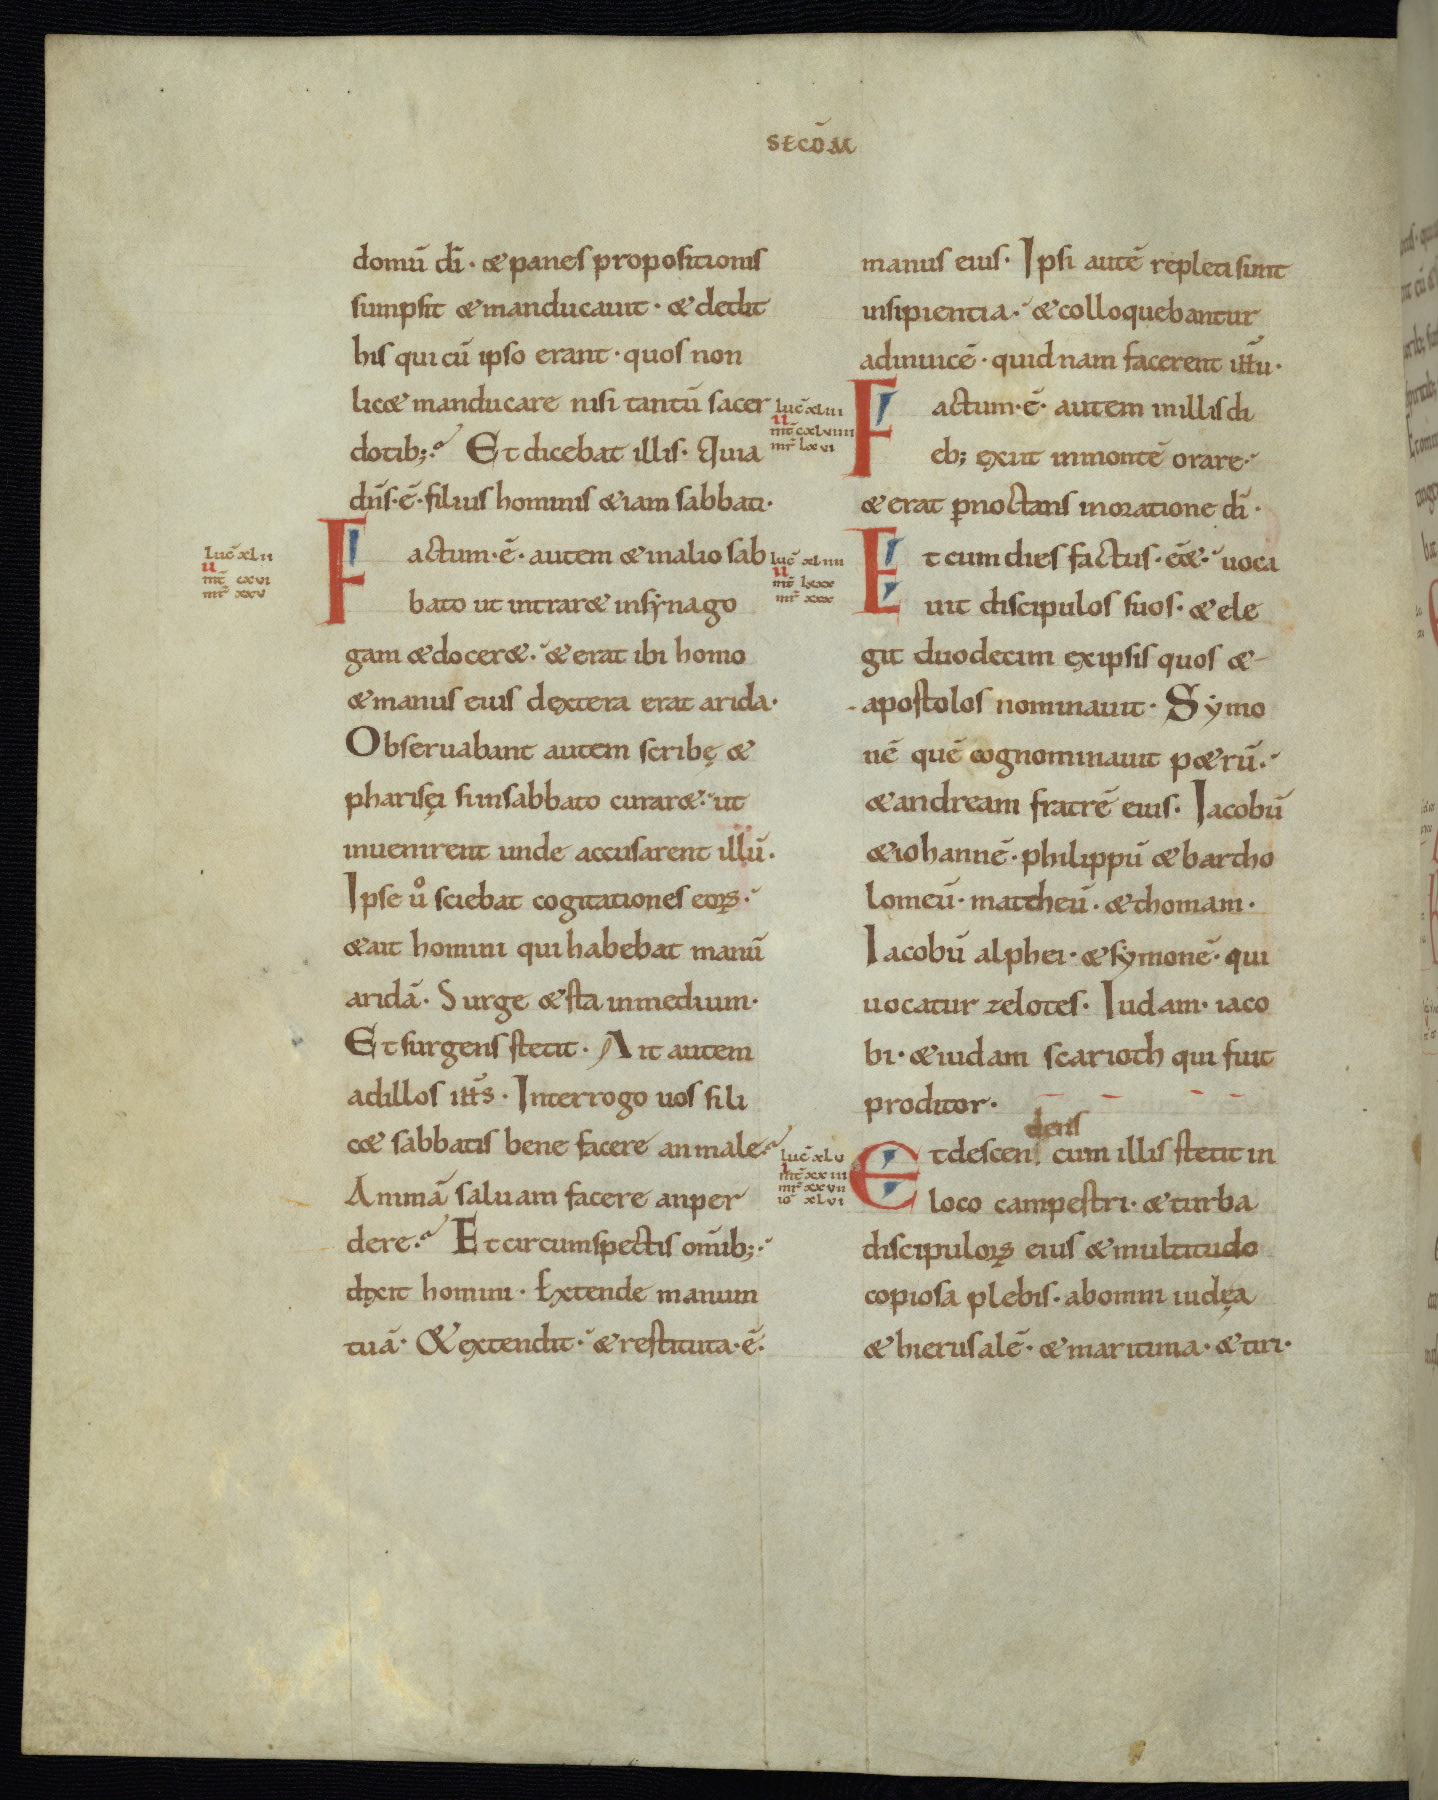 SECD̄M
domū dī · & panes propositionis
sumpsit & manducauit · & dedit
his qui cū ipso erant · quos non
lic& manducare nisi tantū sacer
dotib; · Et dicebat illis · Quia
dn̄s · ē · filius hominis & iam sabbati ·
Luc̄ xl ii
u
mt̄ cxvi
mr̄ xxv
Factum · ē · autem & in alio sab
bato ut intrar& in sẏnago
gam & docer& · & erat ibi homo
& manus eius dextera erat arida ·
Obseruabant autem scribę &
pharisęi si in sabbato curar& · ut
inuenirent unde accusarent illū ·
Ipse uº sciebat cogitationes eoꝝ ·
& ait homini qui habebat manū
aridā · Surge & sta in medium ·
Et surgens stetit · Ait autem
ad illos ih̄s · Interrogo uos si li
c& sabbatis bene facere an male
Animā saluam facere an per
dere · Et circumspectis om̄ib; ·
dixit homini · Extende manum
tuā · & extendit · & restituta · ē ·
manus eius · Ipsi autē repleti sunt
insipientia · & colloquebantur
adinuicē · quid nam facerent ih̄u ·
Luc̄ xl iii
u
mt̄ cxl viiii
mr̄ lxvi
Factum · ē · autem in illis di
eb; exiit in montē orare ·
& erat ꝑnoctans in oratione dī ·
Luc̄ xl iiii
u
mt̄ lxxx
mr̄ xxx
Et cum dies factus · ēē& · uoca
uit discipulos suos · & ele
git duodecim ex ipsis quos &
apostolos nominauit · Sẏmo
nē quē cognominauit p&rū ·
& andream fratrē eius · Iacobū
& iohannē · philippū & bartho
lomeū · mattheū · & thomam ·
Iacobū alphei · & sẏmonē · qui
uocatur zelotes · Iudam · iaco
bi · & iudam scarioth qui fuit
proditor ·
Luc̄ xl v
mt̄ xxiii
mr̄ xxvii
io̅ xl vi
dens
Et descen cum illis stetit in
loco campestri · & turba
discipuloꝝ eius & multitudo
copiosa plebis · ab omni iudęa
& hierusalē · & maritima · & tiri ·